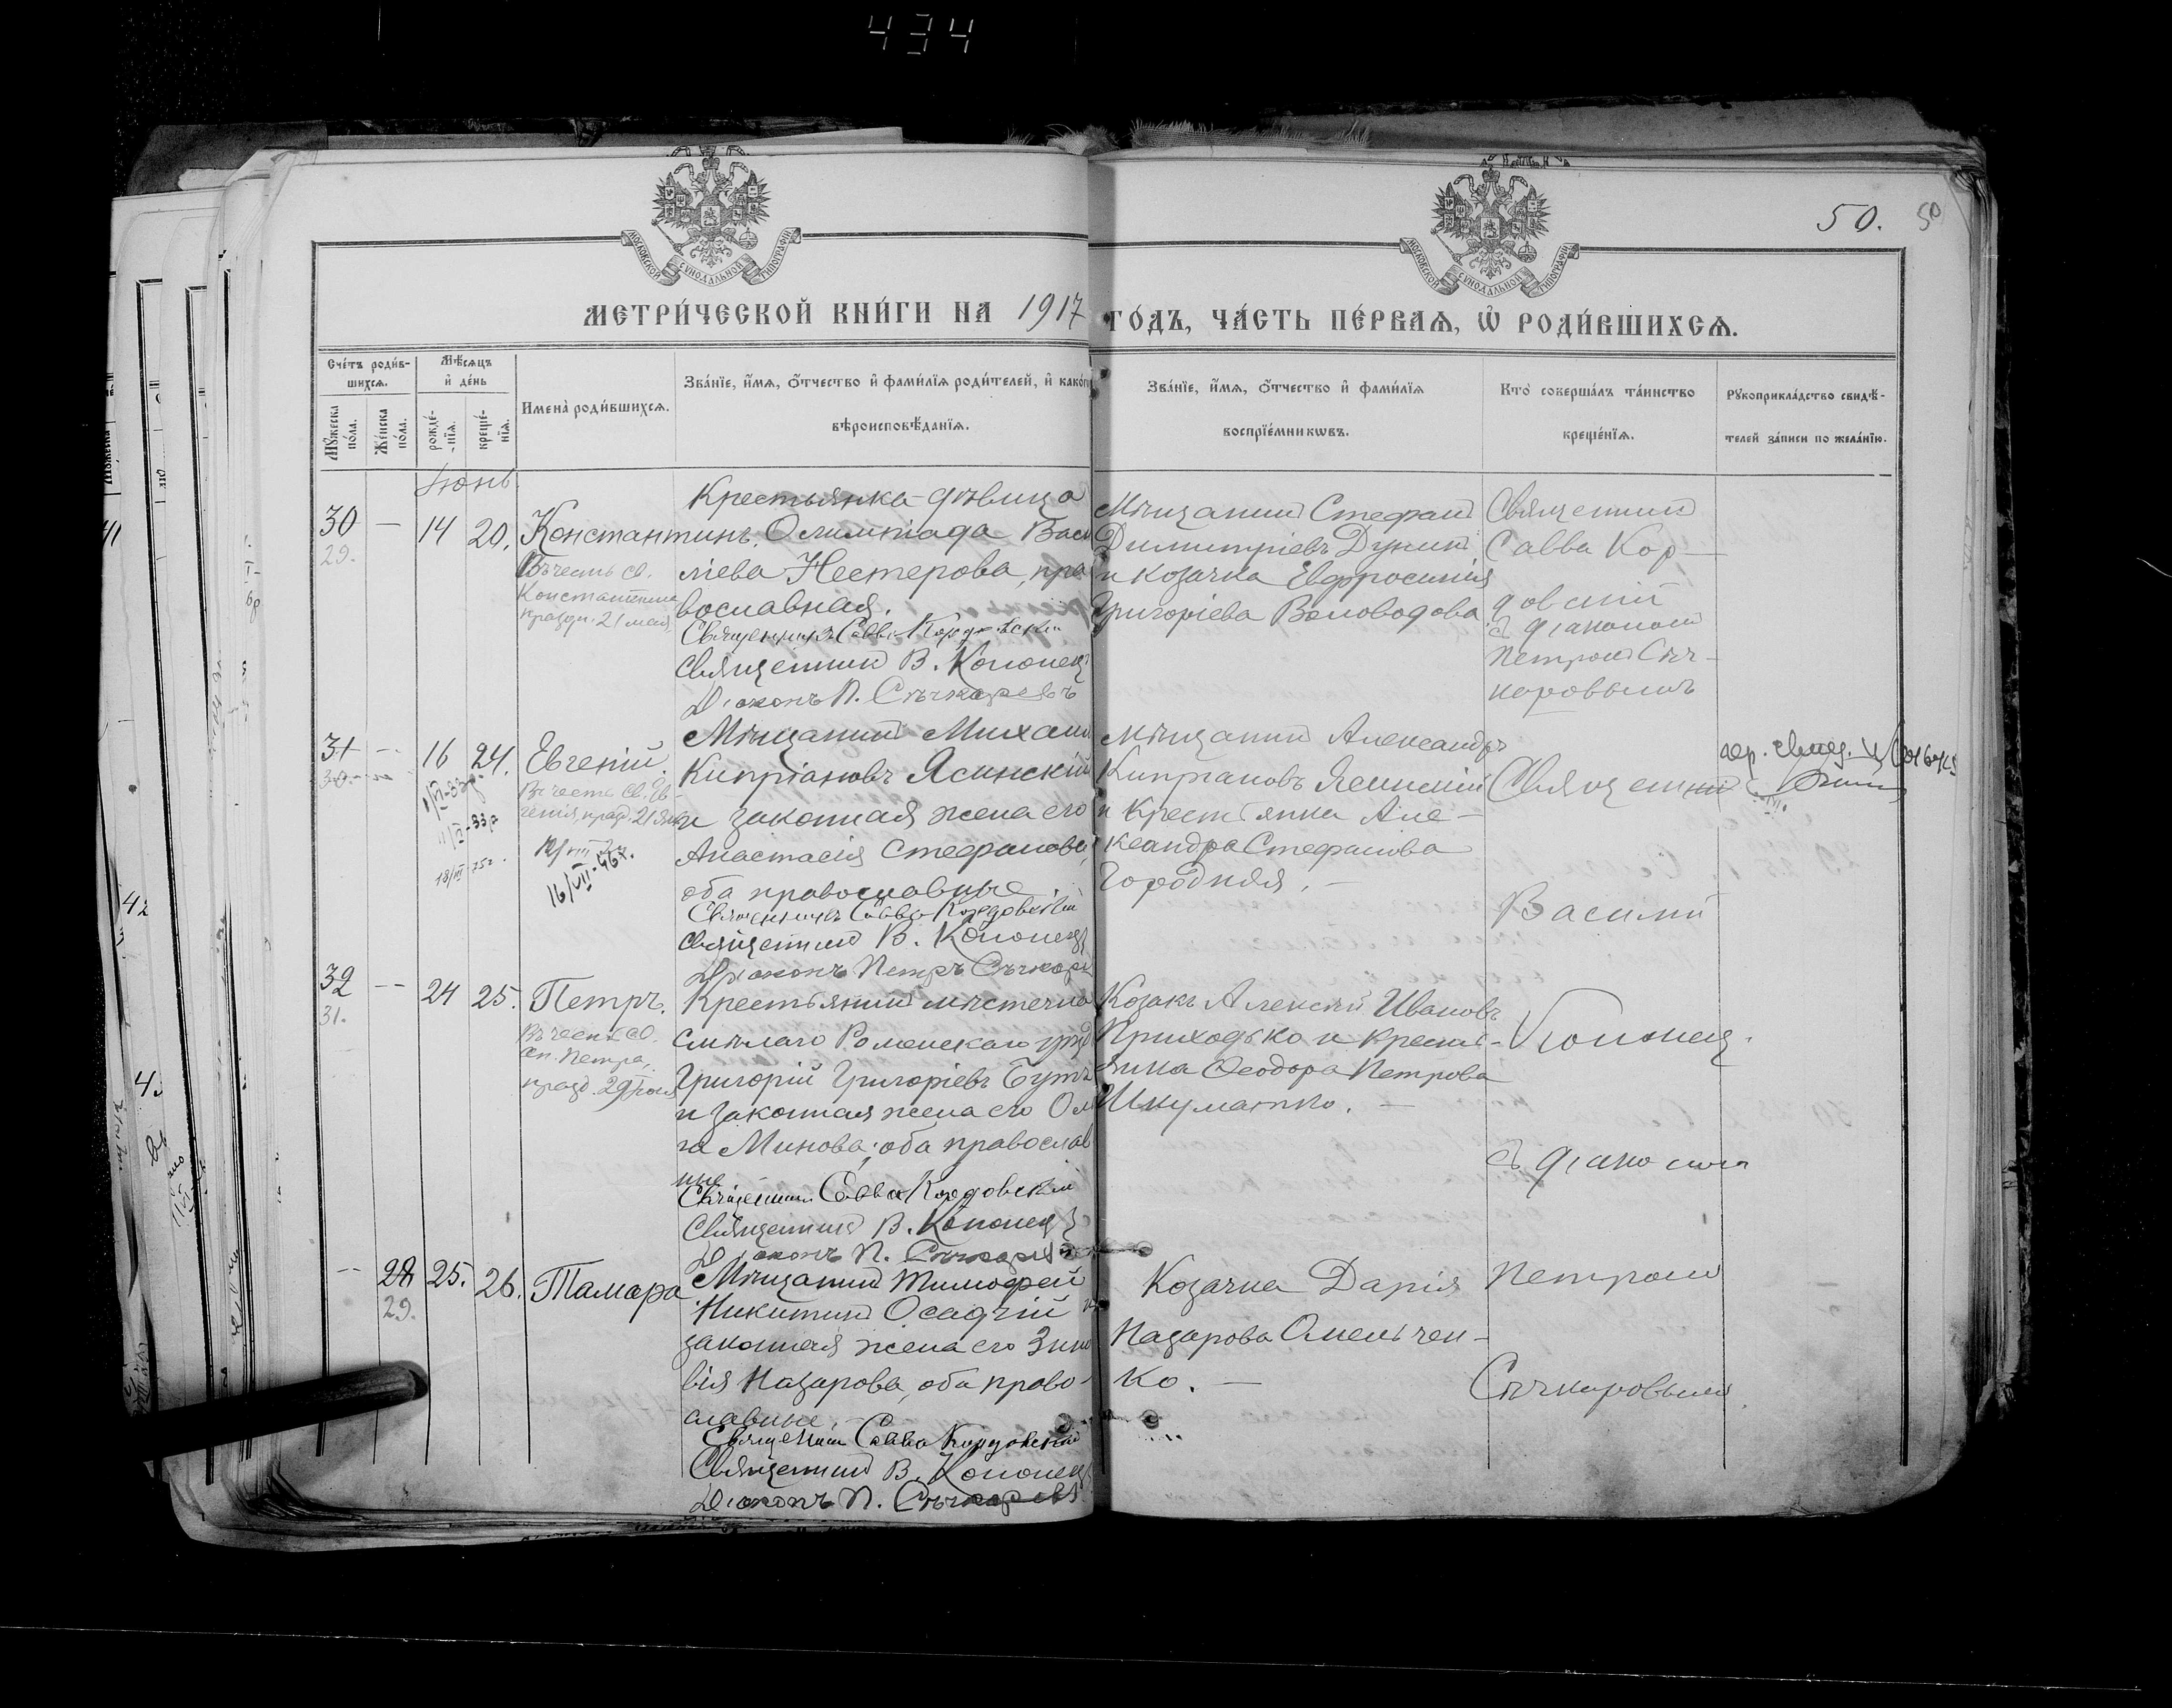 434
50. 50
МОСКОВСКОЙ СУНОДАЛЬНОЙ ТИПОГРАФІИ
МОСКОВСКОЙ СУНОДАЛЬНОЙ ТИПОГРАФІИ
МЕТРИ́ЧЕСКОЙ КНИ́ГИ НА 1917 ГО́ДЪ, ЧА́СТЬ ПЕ́РВАѦ, Ѡ҆ РОДИ́ВШИХСѦ.
Сче́тъ роди́в-
шихсѧ.
Мѣ́сѧцъ
и҆ де́нь
Мꙋ́жеска по́ла.
Же́нска по́ла.
рожде́-
нїѧ.
креще́-
нїѧ.
Имена̀ роди́вшихсѧ.
Зва́нїе, и҆́мѧ, ѻ҆́тчество и҆ фами́лїѧ роди́телей, и҆ како́гѡ
вѣроисповѣ́данїѧ.
Зва́нїе, и҆́мѧ, ѻ҆́тчество и҆ фами́лїѧ
воспрїе́мникѡвъ.
Кто̀ соверша́лъ та́инство
креще́нїѧ.
Рꙋкоприкла́дство свидѣ́-
телей за́писи по жела́нїю.
Іюнь.
30 — 14 20. Константинъ.
29.
Въ честь св.
Константина
праздн. 21 мая
Крестьянка-дѣвица
Олимпіада Васи
ліева Нестерова, пра
вославная.
Священникъ Савва Кордовскій
Священникъ В. Кононец
Діаконъ П. Сѣчкаревъ
Мѣщанинъ Стефан
Димитріевъ Дуник
и козачка Евфросинія
Григоріева Воловодова
Священник
Савва Кор-
довскій
съ діаконом
Петром Сѣч-
каровымъ
31 — 16 24. Евгеній.
30.
Въ честь св. Ев-
генія, празд. 21 Янв
16/VII-46г.
Мѣщанинъ Михаил
Кипріановъ Ясинскій
и законная жена его
Анастасія Стефанова,
оба православные
Священникъ Савва Кордовскій
Священникъ В. Кононец
Діаконъ Петръ Сѣчкарев
Мѣщанин Александръ
Кипріановъ Ясинскій
и крестьянка Але-
ксандра Стефанова
Городняя. —
Священник
Василій
32 — 24 25. Петръ.
31.
Въ честь св.
ап. Петра,
празд. 29 Іюня
Крестьянинъ мѣстечка
Смѣлаго Роменскаго уѣзд
Григорій Григоріевъ Бутъ
и законная жена его Ол
га Минова, оба православ
ные
Священник Савва Кордовскій
Священник В. Кононец
Діаконъ П. Сѣчкарев
Козакъ Алексѣй Ивановъ
Приходько и кресть-
янка Ѳеодора Петрова
Шкуматко. —
Кононец.
съ діаконом
— 28 25. 26. Тамара
29.
Мѣщанинъ Тимофей
Никитинъ Осадчій и
законная жена его Зино
вія Назарова, оба право-
славные. —
Священник Савва Кордовскій
Священник В. Кононец
Діаконъ П. Сѣчкаревъ
Козачка Дарія
Назарова Омельчен-
ко. —
Петром
Сѣчкаровым.